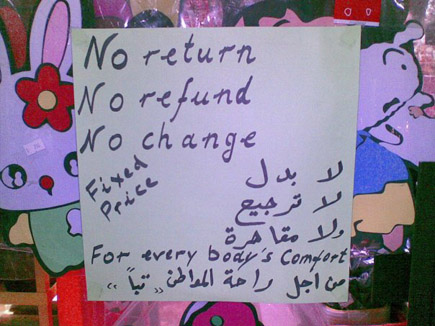 No return
No refund
No change
Fixed Price
لا بدل
لا ترجيع
ولا مقاحرة
For every body's Comfort
من اجل راحة المواطن "تباً"